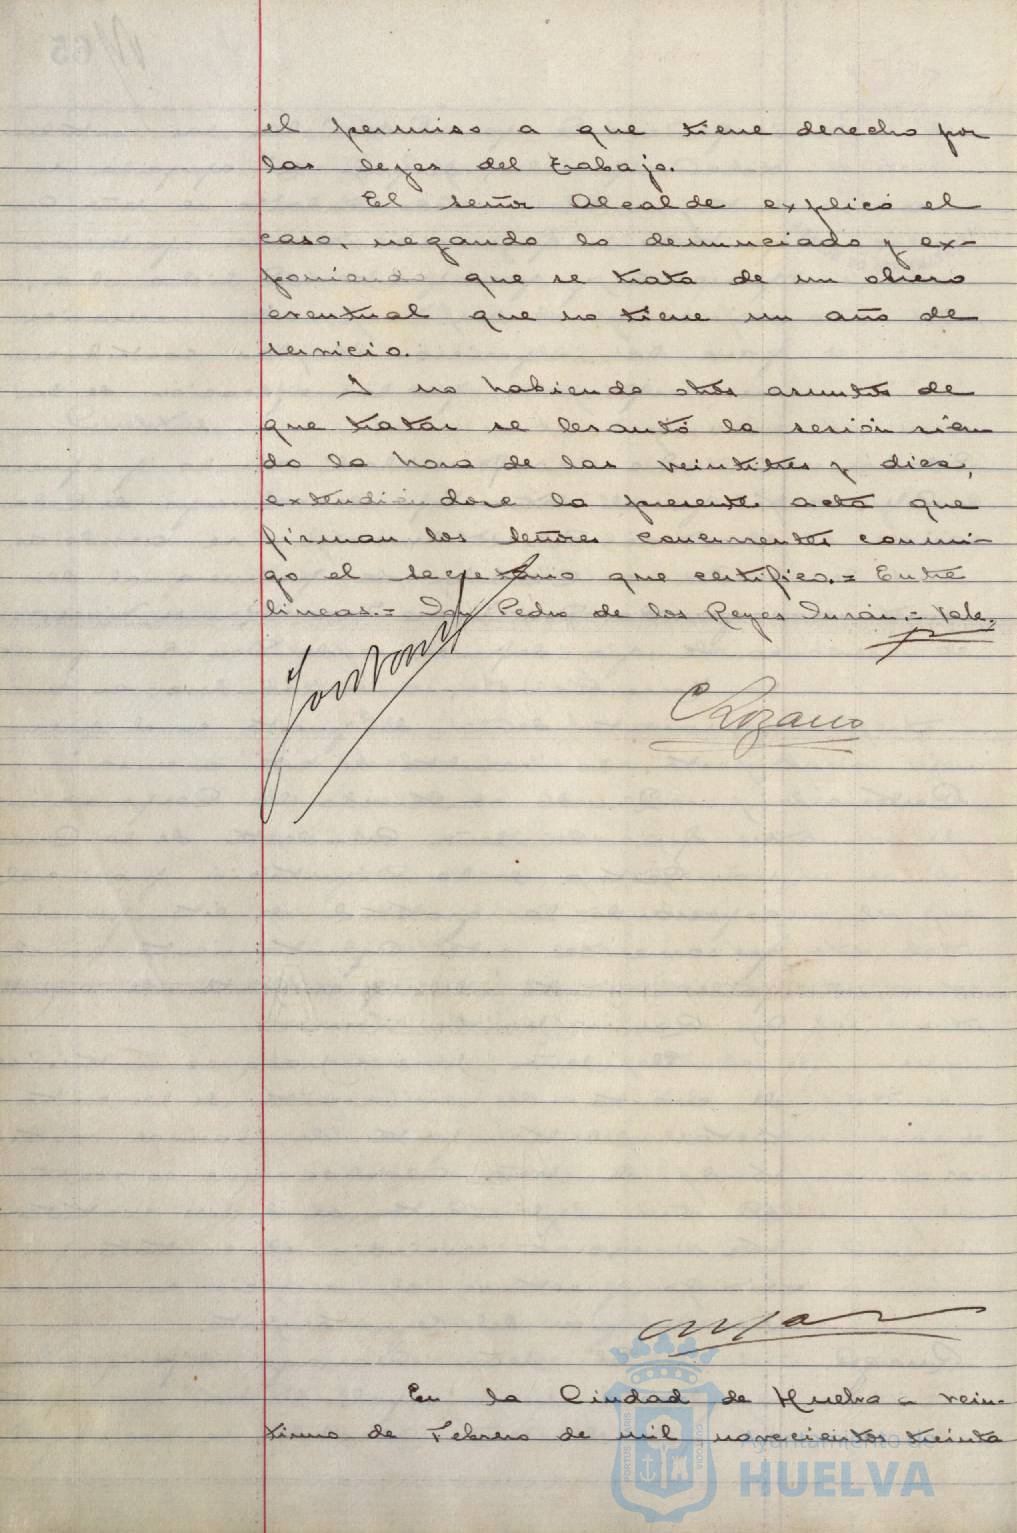 el permiso a que tiene derecho por
las leyes del trabajo.
El señor Alcalde explicó el
caso, negando lo denunciado y ex-
poniendo que se trata de un obrero
eventual que no tiene un año de
servicio.
Y no habiendo otros asuntos de
que tratar se levantó la sesión sien-
do la hora de las veintitres y diez,
extendiendose la presente acta que
firman los señores concurrentes conmi-
go el secretario que certifico.= Entre
lineas.= Don Pedro de los Reyes Durán.= Vale.
C Lozano
En la Ciudad de Huelva a vein-
tiuno de Febrero de mil novecientos treinta
Ayuntamiento de
HUELVA